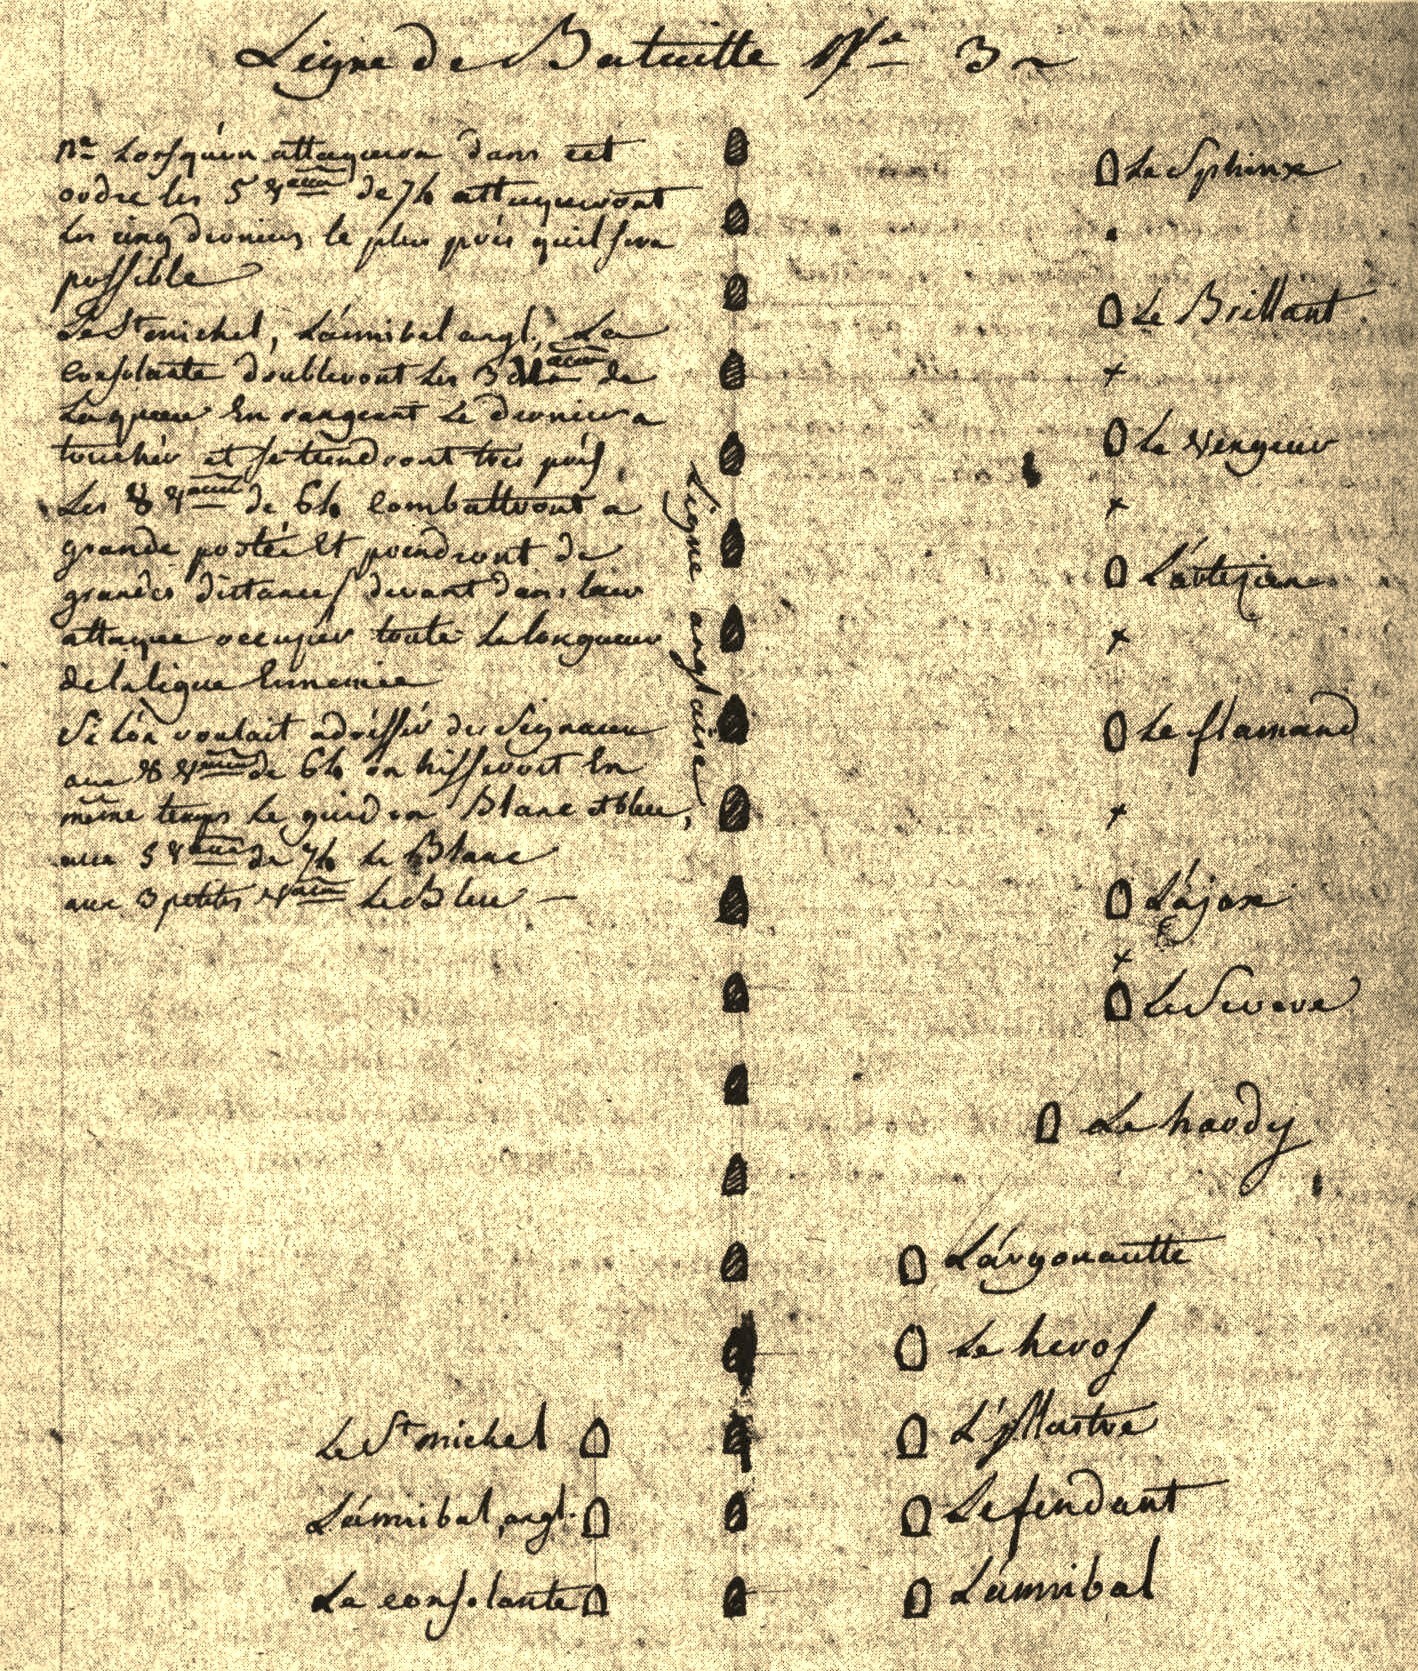 Ligne de Bataille Nº 3
nª Lorsqu'on attaquera dans cet
ordre les 5 vaux de 74 attaqueront
les cinq derniers le plus près qu'il sera
possible
Le St michel, L'annibal angl., La
consolante doubleront les 3 de
La queue En rangeant Le dernier a
toucher et se tiendront très près
Les 8 vaux de 64 Combattront a
grande portée Et prendront de
grandes distances devant dans leur
attaque occuper toute La longueur
de la ligne Ennemie
Si L'on voulait adresser des Signaux
aux 8 vaux de 64 on hisseroit En
même temps Le guidon Blanc et bleu,
aux 5 vaux de 74 Le Blanc
aux 3 petites vaux Le Bleu —
Ligne anglaise
Le Sphinx
Le Brillant
Le Vengeur
L'artezien
Le flamand
L'ajax
Le Severe
Le hardy
L'argonautte
Le heros
L'yllustre
Le fendant
L'annibal
Le St michel
L'annibal angl.
La consolante